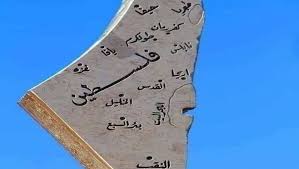 حيفا
طولكرم
نابلس
يافا
غزة
فلسطين
اريحا
القدس
الخليل
بئر السبع
النقب